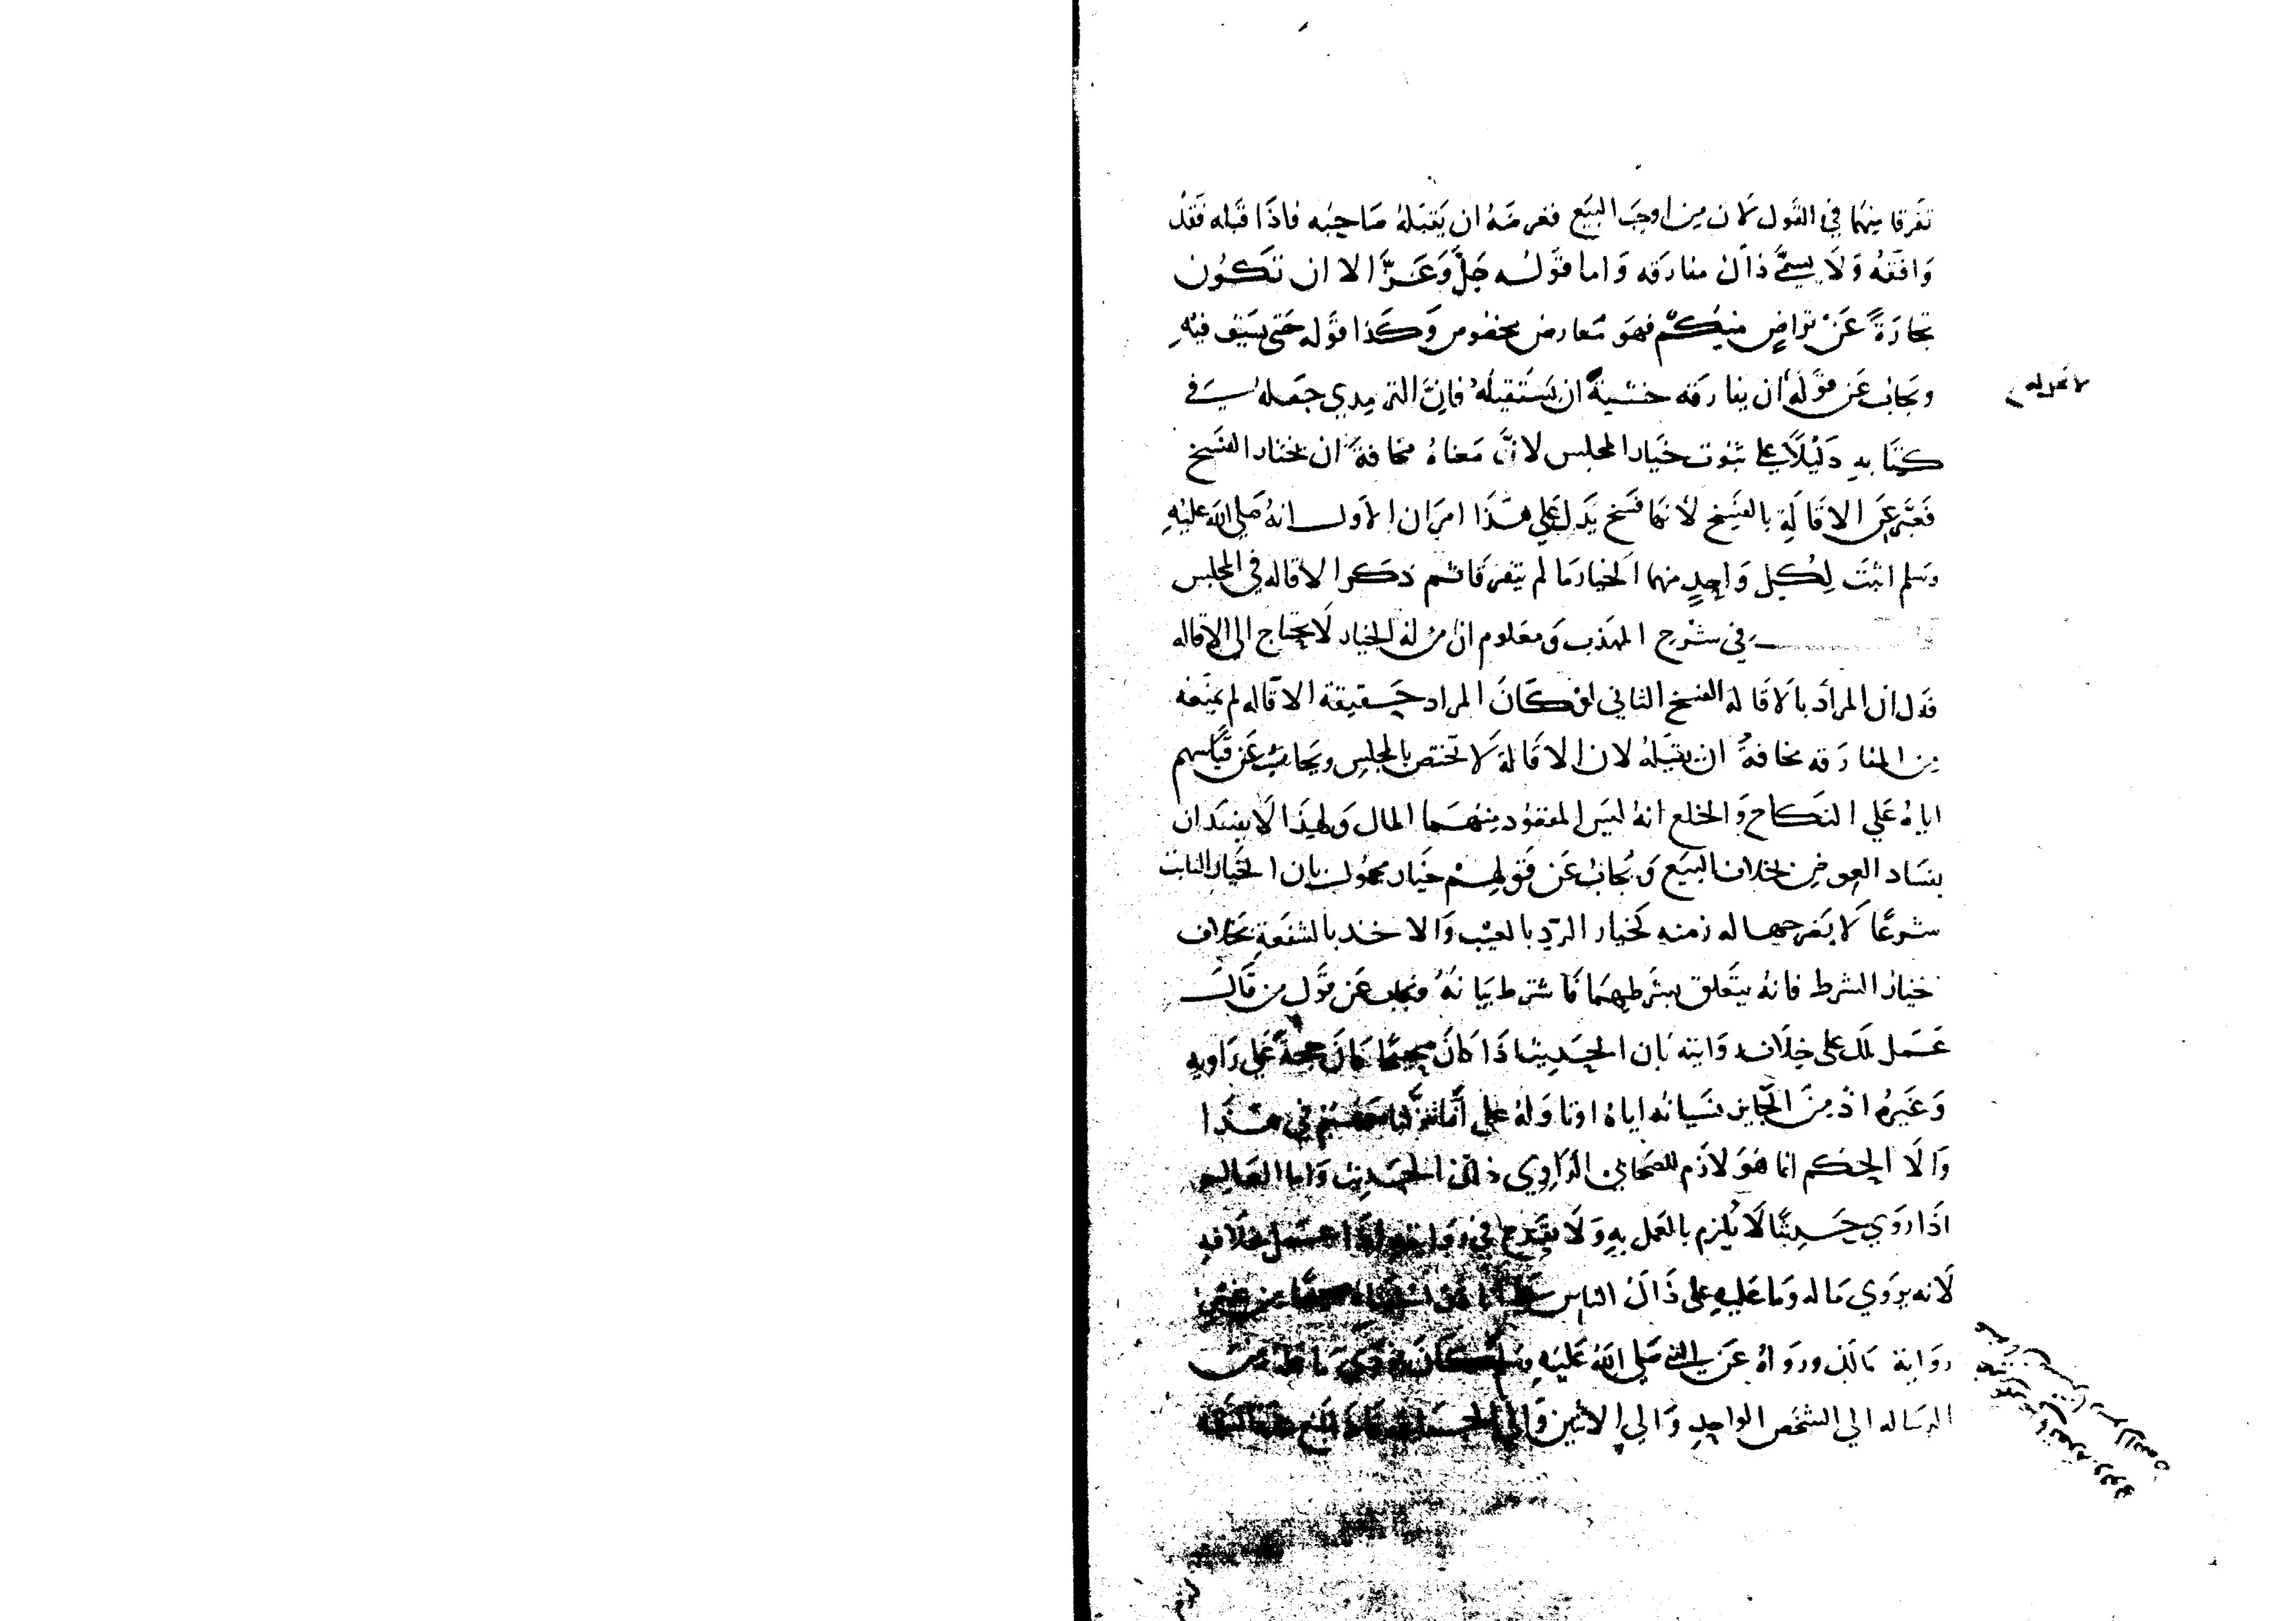 تفرقا منهما في القول لان من اوجب البيع فغرضه ان يقبله صاحبه فاذا قبله فقد
وافقه ولا يسمى ذلك مفارقه واما قوله جل وعز الا ان تكون
تجارة عن تراض منكم فهو معارض بخصوص وكذا قوله حتى يستوفيه
ويجاب عن قوله ان يفارقه خشية ان يستقيله فان الترمدي جعله في
لا تحل له
كتابه دليلا على ثبوت خيار المجلس لان معناه مخافة ان يختار الفسخ
فعبر عن الاقالة بالفسخ لانها فسخ يدل على هذا امران الاول انه صلى الله عليه
وسلم اثبت لكل واحد منهما الخيار ما لم يتفرقا ثم ذكر الاقاله في المجلس
في شرح المهذب ومعلوم ان من له الخيار لا يحتاج الى الاقاله
فدل ان المراد بالاقالة الفسخ الثاني لو كان المراد حقيقة الاقاله لم يمنعه
من المفارقه مخافة ان يقيله لان الاقالة لا تختص بالمجلس ويجاب عن قياسهم
اياه على النكاح والخلع انه ليس المقصود منهما المال ولهذا لا يفسدان
بفساد العوض بخلاف البيع ويجاب عن قولهم خيار مجهول بان الخيار الثابت
شرعا لا يضر جهاله زمنه كخيار الرد بالعيب والاخذ بالشفعة بخلاف
خيار الشرط فانه يتعلق بشرطهما فاشترط بيانه ويجاب عن قول من قال
عمل ملك على خلاف روايته بان الحديث اذا كان صحيحا كان حجة على راويه
وغيره اذ من الجايز نسيانه اياه او تاوله على في هذا
والا الحكم انما هو لازم للصحابي الراوي ذلك الحديث واما العالم
اذا روي حديثا لا يلزم بالعمل به ولا يقدح في روايته اذا عمل بخلافه
لانه يروي ما له وما عليه على ذلك الناس
رواية مالك ورواه عن النبي صلى الله عليه وسلم كان يودي
الرساله الي الشخص الواحد والي الاثنين والي الجماعه